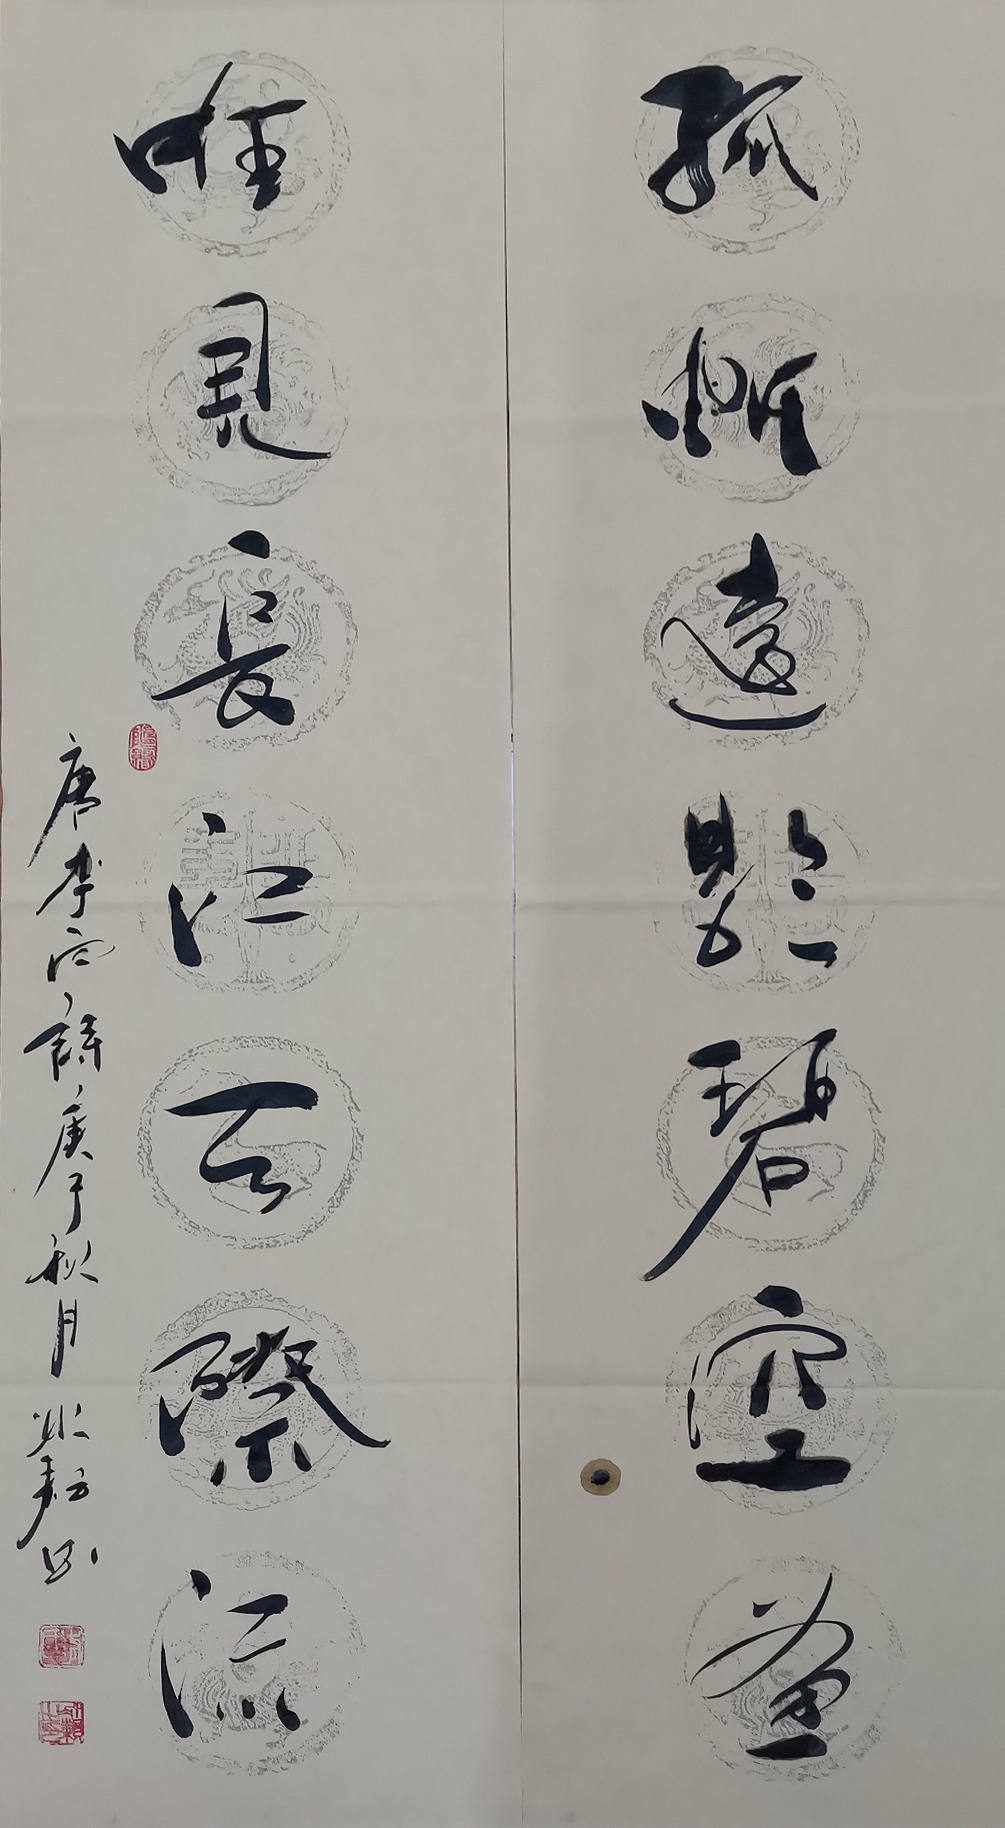 孤帆遠影碧空盡
唯見長江天際流
唐李白詩庚子秋月